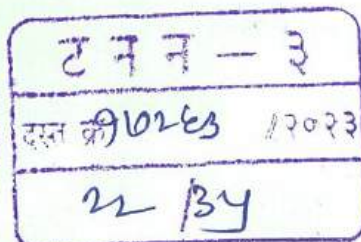 ट न न - ३
दस्त क्र १७२६३ /२०२३
२२ /३५